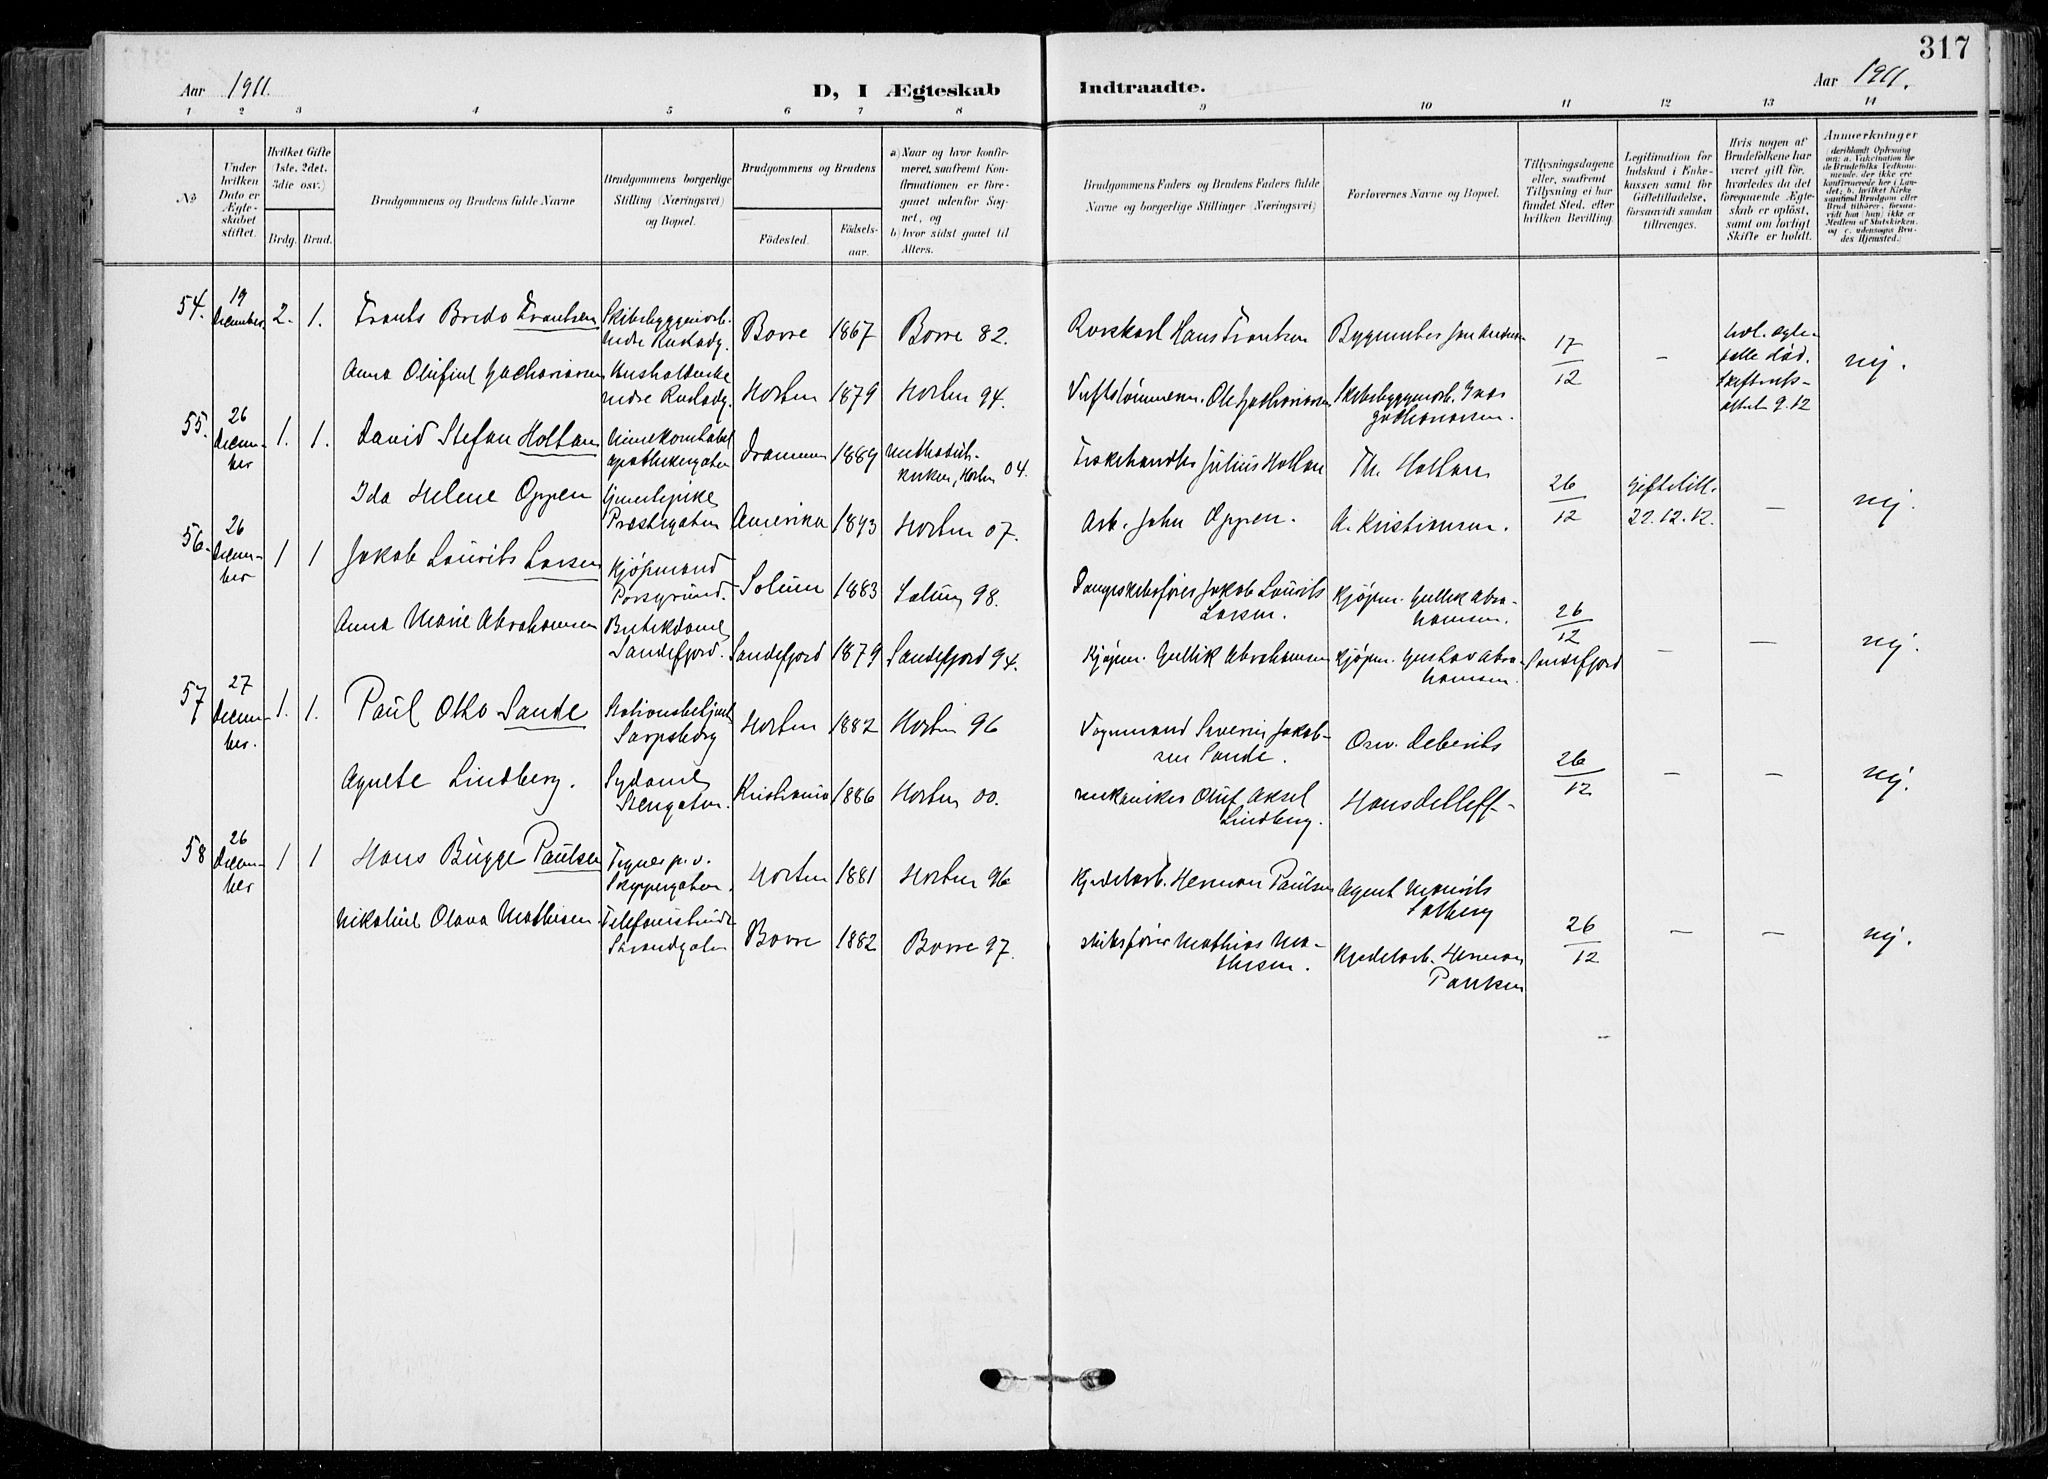 317
Aar 1911.
D, I Ægteskab Indtraadte.
Aar 1911.
1 2 3 4 5 6 7 8 9 10 11 12 13 14
No
Under hvilken Dato er Ægteskabet stiftet.
Hvilket Gifte (1ste, 2det, 3die osv.)
Brdg. Brud.
Brudgommens og Brudens fulde Navne
Brudgommens borgerlige Stilling (Næringsvei) og Bopæl.
Brudgommens og Brudens
Fødested.
Fødselsaar.
a) Naar og hvor konfirmeret, saafremt Konfirmationen er foregaaet udenfor Sognet, og
b) hvor sidst gaaet til Alters.
Brudgommens Faders og Brudens Faders fulde Navne og borgerlige Stillinger (Næringsvei)
Forlovernes Navne og Bopæl.
Tillysningsdagene eller, saafremt Tillysning ei har fundet Sted, efter hvilken Bevilling.
Legitimation for Indskud i Enkekassen samt for Giftetilladelse, forsaavidt saadan tiltrænges.
Hvis nogen af Brudefolkene har været gift før, hvorledes da det foregaaende Ægteskab er opløst, samt om lovligt Skifte er holdt.
Anmerkninger (deriblandt Oplysning om: a. Vakcination for de Brudefolks Vedkommende, der ikke ere konfirmerede her i Landet; b. hvilket Kirkesamfund Brudgom eller Brud tilhører, forsaavidt han (hun) ikke er Medlem af Statskirken, og c. udensogns Brudes Hjemsted.)
54. 19 December 2. 1. Frants Bredo Frantsen Skibsbyggeriarb. nedre Keisladg. Borre 1867 Borre 82. Rorskarl Hans Frantsen 17/12 – død. nej.
Anna Olufine Zachariasen Husholderske nedre Horten 1879 Horten 94. Ole Zachariasen Skibsbyggeriarb. Zachariasen. 9.12
55. 26 December 1. 1. David Stefan Holtan Minekonstabel apothekergaten Drammen 1889 Methodistkirken, Horten 04. Fiskehandler Julius Holtan Th. Holtan 26/12 giftetill. 22.12.12. – nej.
Ida Helene Oppen Prestegaten Amerika 1893 Horten 07. Arb. John Oppen. A. Kristiansen.
56. 26 December 1 1 Jakob Laurits Larsen Kjøpmand Porsgrund. Solum 1883 Solum 98. Dampskibsfører Jakob Laurits Larsen. Kjøpm. Gullik Abrahamsen. 26/12 Sandefjord – – nej.
Anna Marie Abrahamsen Butikdame Sandefjord. Sandefjord 1879 Sandefjord 94. Kjøpm. Gullik Abrahamsen Kjøpm. Gustav Abrahamsen.
57 27 December. 1. 1. Paul Otto Sande Stationsbetjent Sarpsborg Horten 1882 Horten 96 Vognmand Severin Jakobsen Sande. Osv. Deberits 26/12 – – nej.
Agnete Lindberg. Sydame Stengaten. Kristiania 1886 Horten 00. mekaniker Oluf Aksel Lindberg. Hans Detleff –
58 26 December 1 1 Hans Bugge Paulsen Tegner p. v. Skippergaten. Horten 1881 Horten 96 Kjedelarb. Herman Paulsen Agent Maurits Solberg 26/12 – – nej.
Nikoline Olava Mathisen Telefonistinde Strandgaten Borre 1882 Borre 97. skibsfører Mathias Mathisen. Kjedelarb. Herman Paulsen